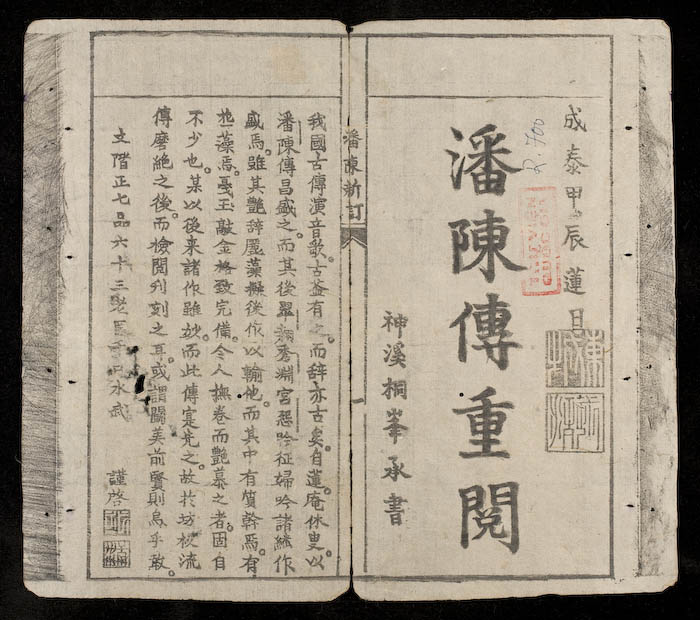 成泰甲辰蓮月
潘陳傳重閱
神溪桐峯承書
R.700
THƯ VIỆN
潘陳新訂
一
我國古傳演音歌。古盖有之。而辞亦古矣。自蓮庵休叟。以
潘陳傳昌盛之。而其後翠翹秀淵宮怨吟征婦吟諸継作
盛焉。雖其艷辞麗藻擬後作以輸他。而其中有質幹焉。有
葩藻焉。戞玉敲金。格致完備。令人撫卷而艷慕之者。固自
不少也。某以後来諸作雖妙。而此傳寔先之。故於坊校流
傳磨絶之後。而檢閱刋刻之耳。或謂闡美前賢則烏乎敢。
文階正七品六十三老 水武 謹啓